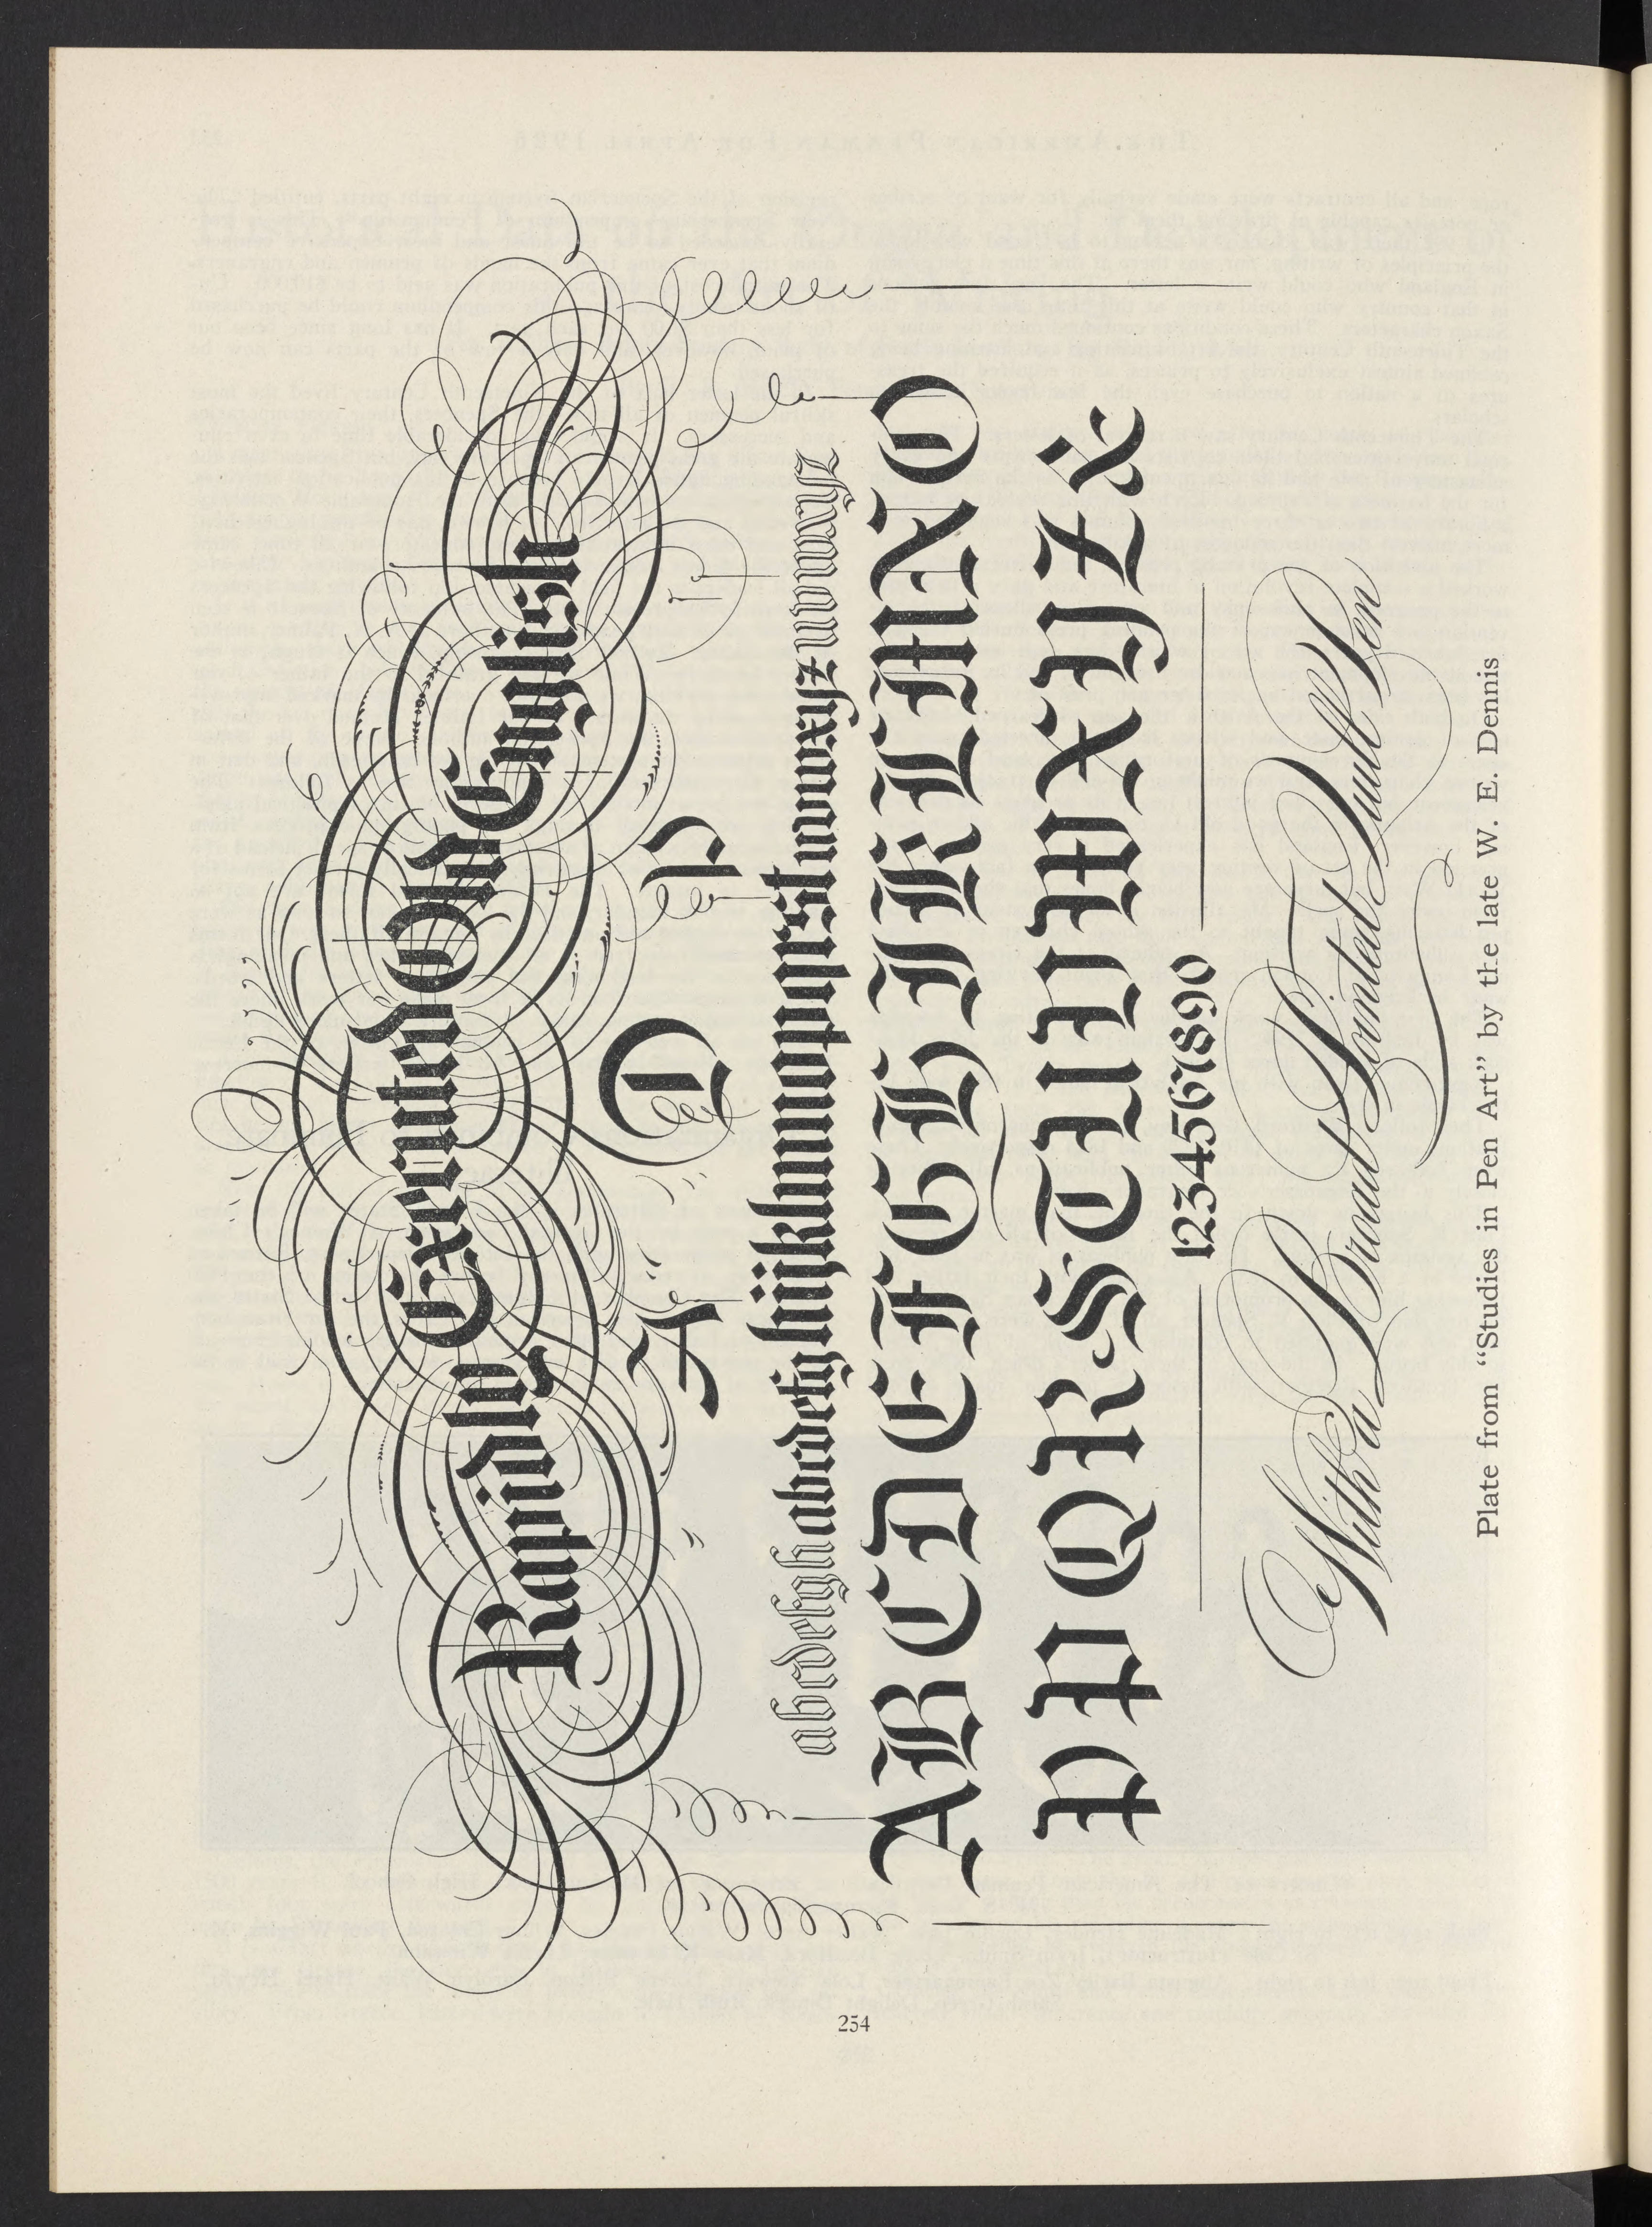 Rapidly Executed Old English
A D P
abcdefgh abcdefg hijklmnopqrst uvwxyz
A B C D E F G H I J K L M N O
P P Q R S T U U W X Y Z &
1234567890
With a Broad Pointed Quill Pen
Plate from "Studies in Pen Art" by the late W. E. Dennis
254